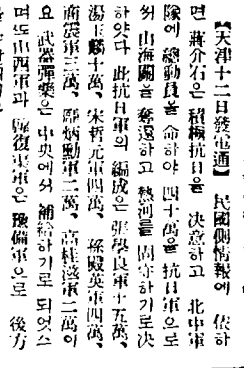 【天津十二日發電通】 民國側情報에 依하
면 蔣介石은 積極抗日을 決意하고 北中軍
隊에 總動員을 命하야 四十萬을 抗日軍으로
써 山海關을 奪還하고 熱河를 固守하기로 决
하얏다 此抗日軍의 編成은 張學良軍十五萬、
湯玉麟十萬、宋哲元軍四萬、孫殿英軍四萬、
商震軍三萬、龐炳勳軍二萬、高桂滋軍二萬이
요 武器彈藥은 中央에서 補給하기로 되엿스
며ᄯᅩ山西軍과 韓復榘軍은 豫備軍으로 後方